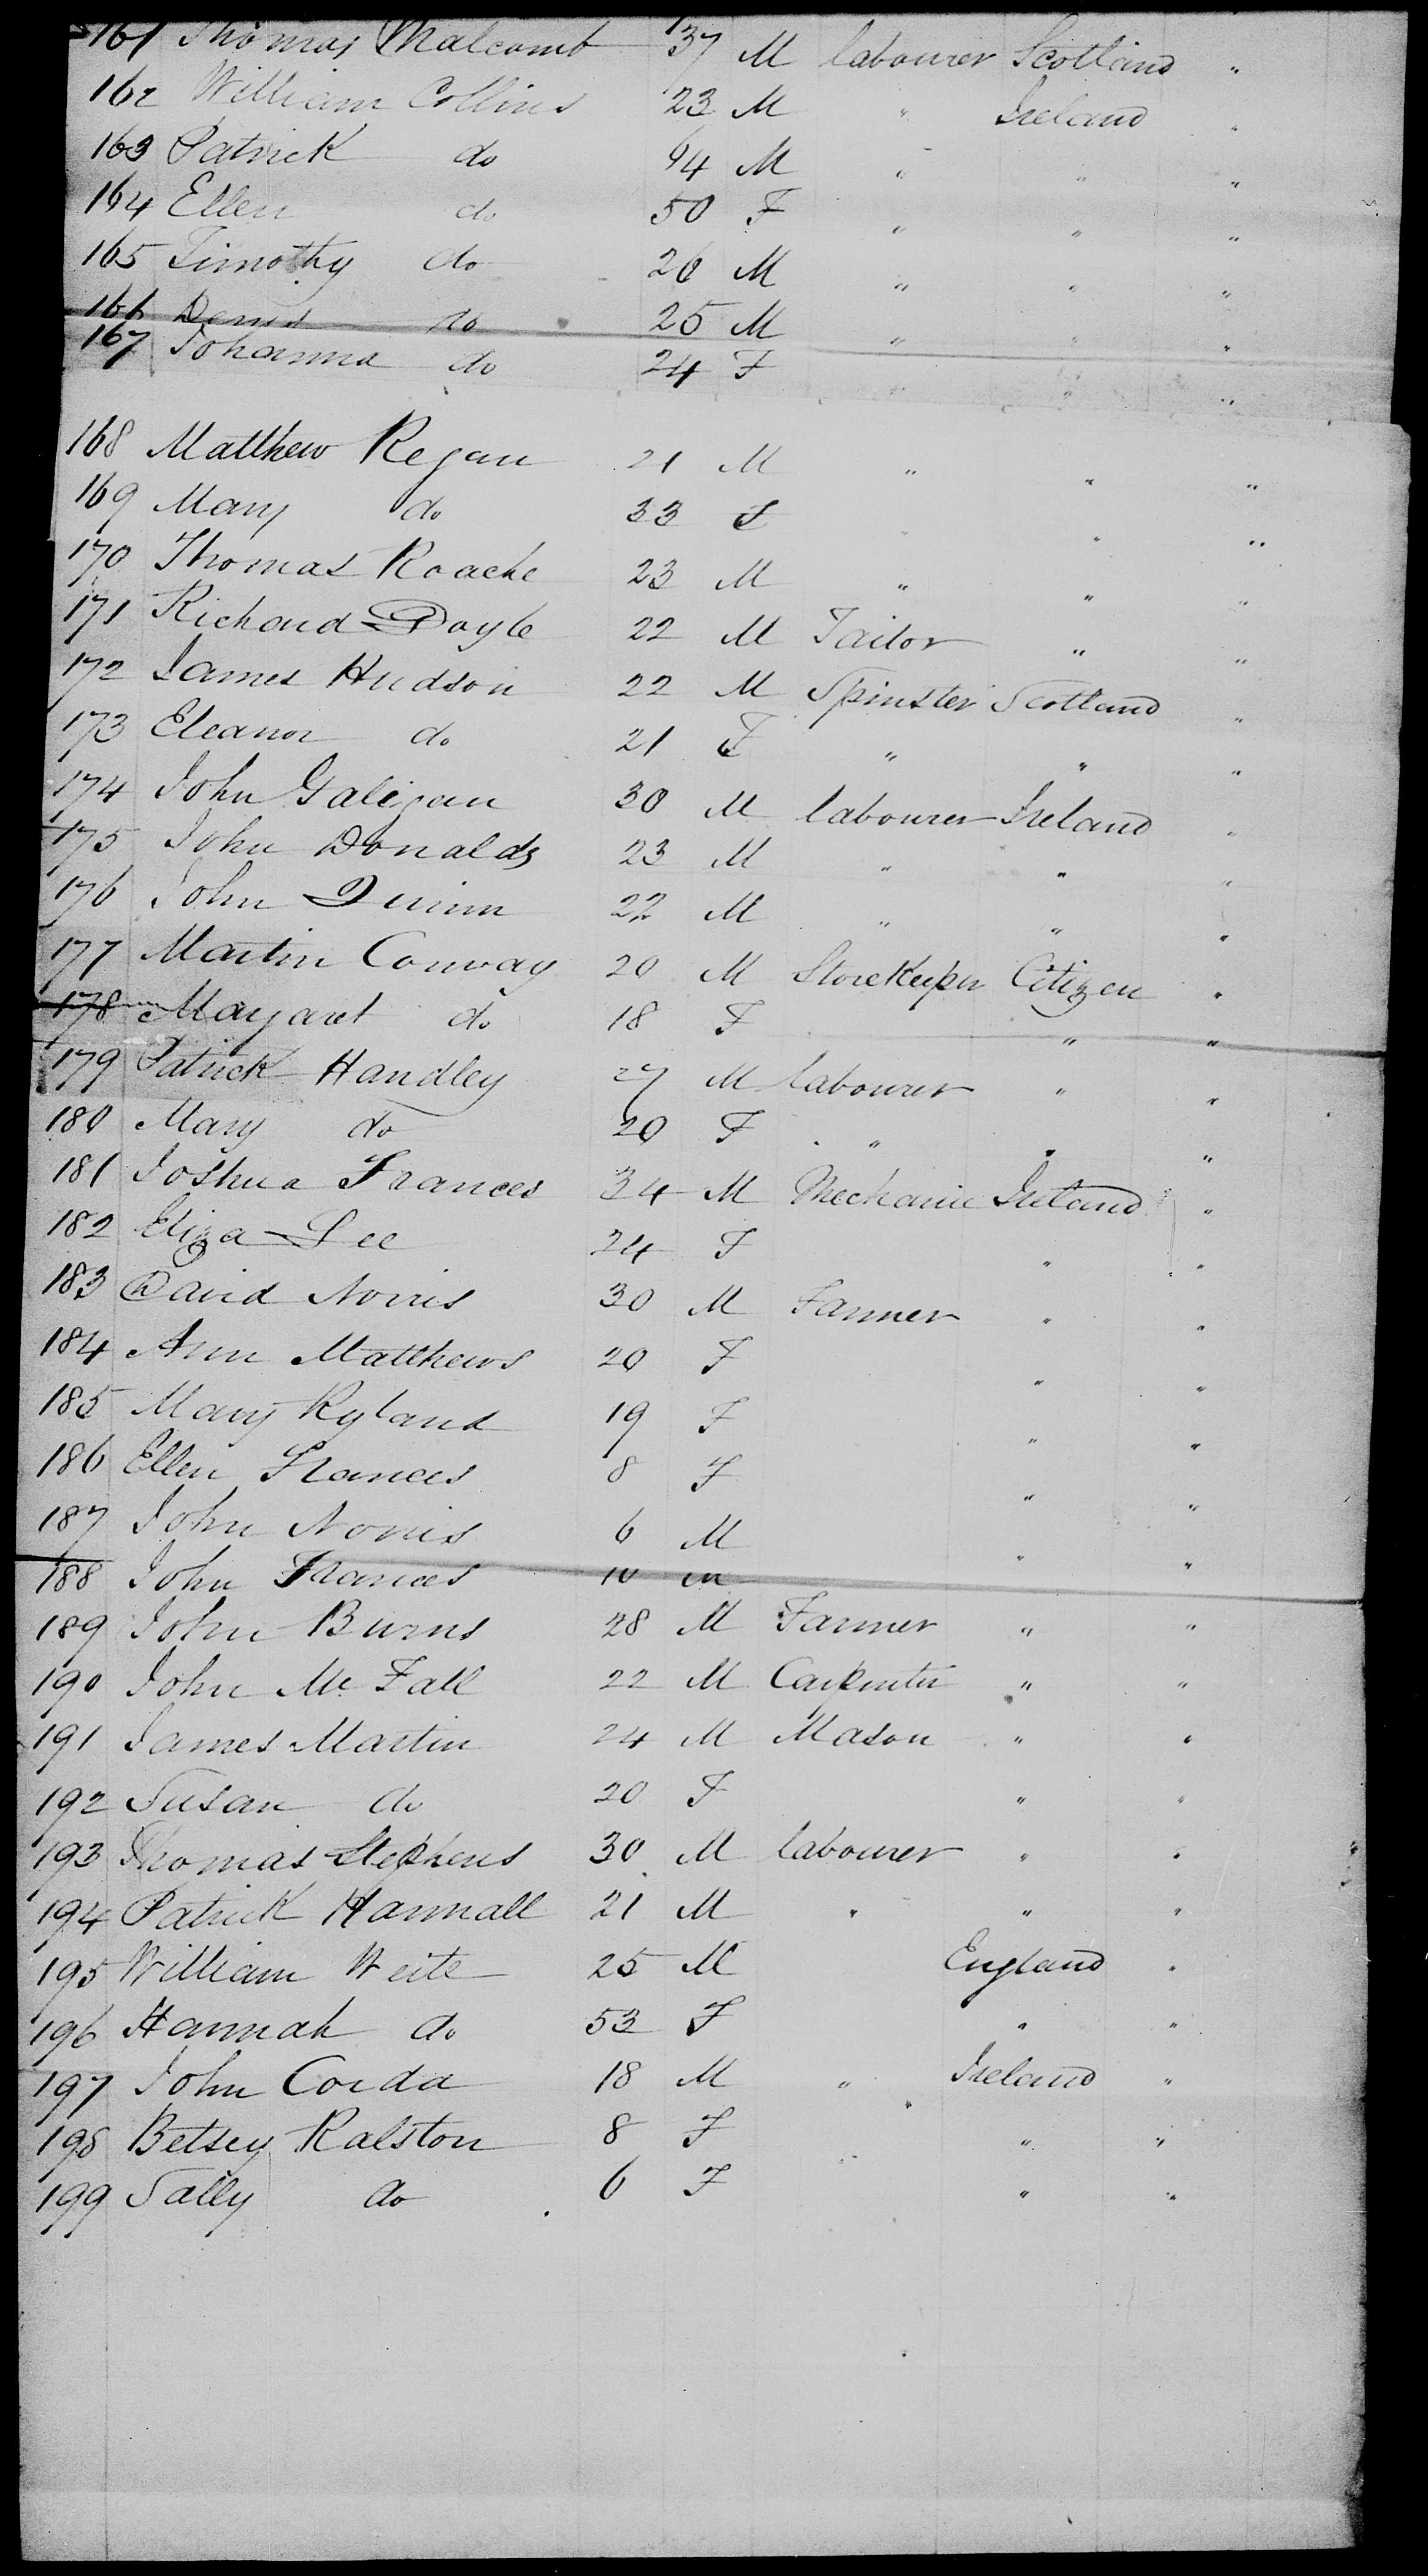 161 Thomas Malcomb 37 M labourer Scotland "
162 William Collins 23 M " Ireland "
163 Patrick do 64 M " " "
164 Ellen do 50 F " " "
165 Timothy do 26 M " " "
166 Denis do 25 M " " "
167 Johanna do 24 F " " "
168 Matthew Regan 21 M " " "
169 Mary do 33 F " " "
170 Thomas Roache 23 M " " "
171 Richard Doyle 22 M Tailor " "
172 James Hudson 22 M Spinster Scotland "
173 Eleanor do 21 F " " "
174 John Galigan 30 M labourer Ireland "
175 John Donalds 23 M " " "
176 John Quinn 22 M " " "
177 Martin Conway 20 M Storekeeper Citizen "
178 Margaret do 18 F " "
179 Patrick Handley 27 M labourer " "
180 Mary do 20 F " " "
181 Joshua Frances 34 M Mechanic Ireland "
182 Eliza Lee 24 F " "
183 David Norris 30 M Farmer " "
184 Ann Matthews 20 F " "
185 Mary Ryland 19 F " "
186 Ellen Frances 8 F " "
187 John Norris 6 M " "
188 John Frances 10 M
189 John Burns 28 M Farmer " "
190 John Mc Fall 22 M Carpenter " "
191 James Martin 24 M Mason " "
192 Susan do 20 F " "
193 Thomas Stephens 30 M labourer " "
194 Patrick Hannall 21 M " " "
195 William Weite 25 M England "
196 Hannah do 53 F " "
197 John Corda 18 M " Ireland "
198 Betsey Ralston 8 F " " "
199 Sally do 6 F " "